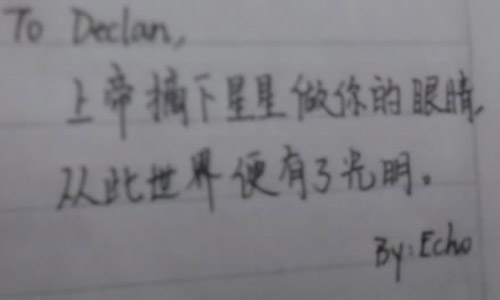 To Declan,
上帝摘下星星做你的眼睛,
从此世界便有了光明。
By: Echo